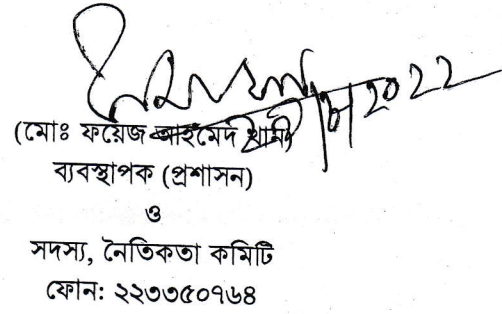 (মোঃ ফয়েজ আহমেদ খান)
ব্যবস্থাপক (প্রশাসন)
ও
সদস্য, নৈতিকতা কমিটি
ফোন: ২২৩৩৫০৭৬৪